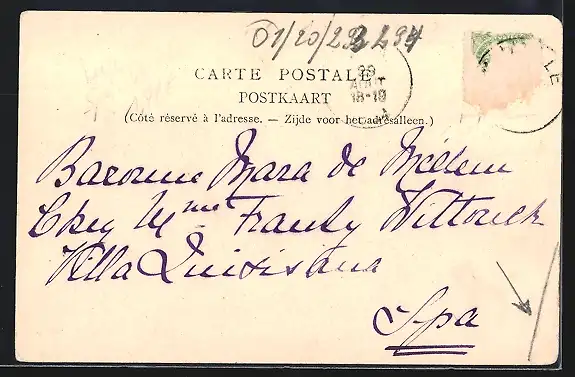 01/20/292294
CARTE POSTALE
POSTKAART
(Côté réservé à l'adresse. — Zijde voor het adres alleen.)
29
AOUT
18-19
LE
Baronne Mara de Medem
Chez Mme Frantz Wittouck
Villa Quisisana
Spa